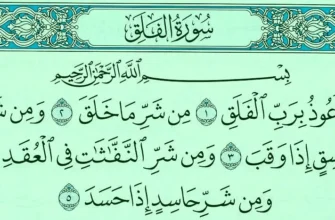 سُورَةُ الفَلَقِ
بِسْمِ ٱللَّهِ ٱلرَّحْمَٰنِ ٱلرَّحِيمِ
عُوذُ بِرَبِّ ٱلْفَلَقِ ١ مِن شَرِّ مَا خَلَقَ ٢ وَمِن شَ
سِقٍ إِذَا وَقَبَ ٣ وَمِن شَرِّ ٱلنَّفَّـٰثَـٰتِ فِي ٱلْعُقَدِ
وَمِن شَرِّ حَاسِدٍ إِذَا حَسَدَ ٥